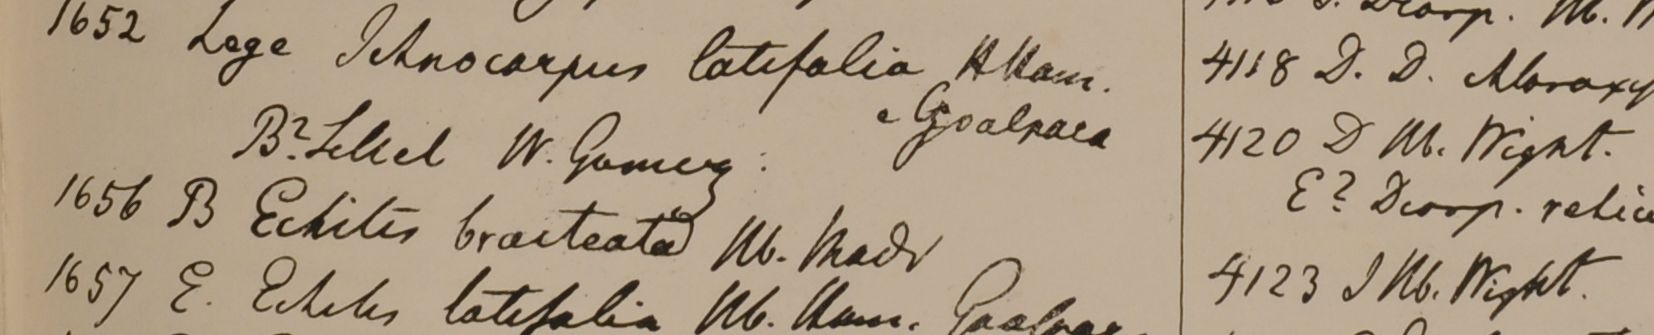 1652 Lege Ichnocarpus latifolia HHam.
e Goalpara
B? Silhet W. Gomez.
1656 B Echites bracteata Hb. Madr
1657 E. Echites latifolia Hb. Ham. Goalpar
Diosp. Hb.
4118 D. D. chloroxy
4120 D Hb. Wight.
E? Diosp.
4123 I Hb. Wight.